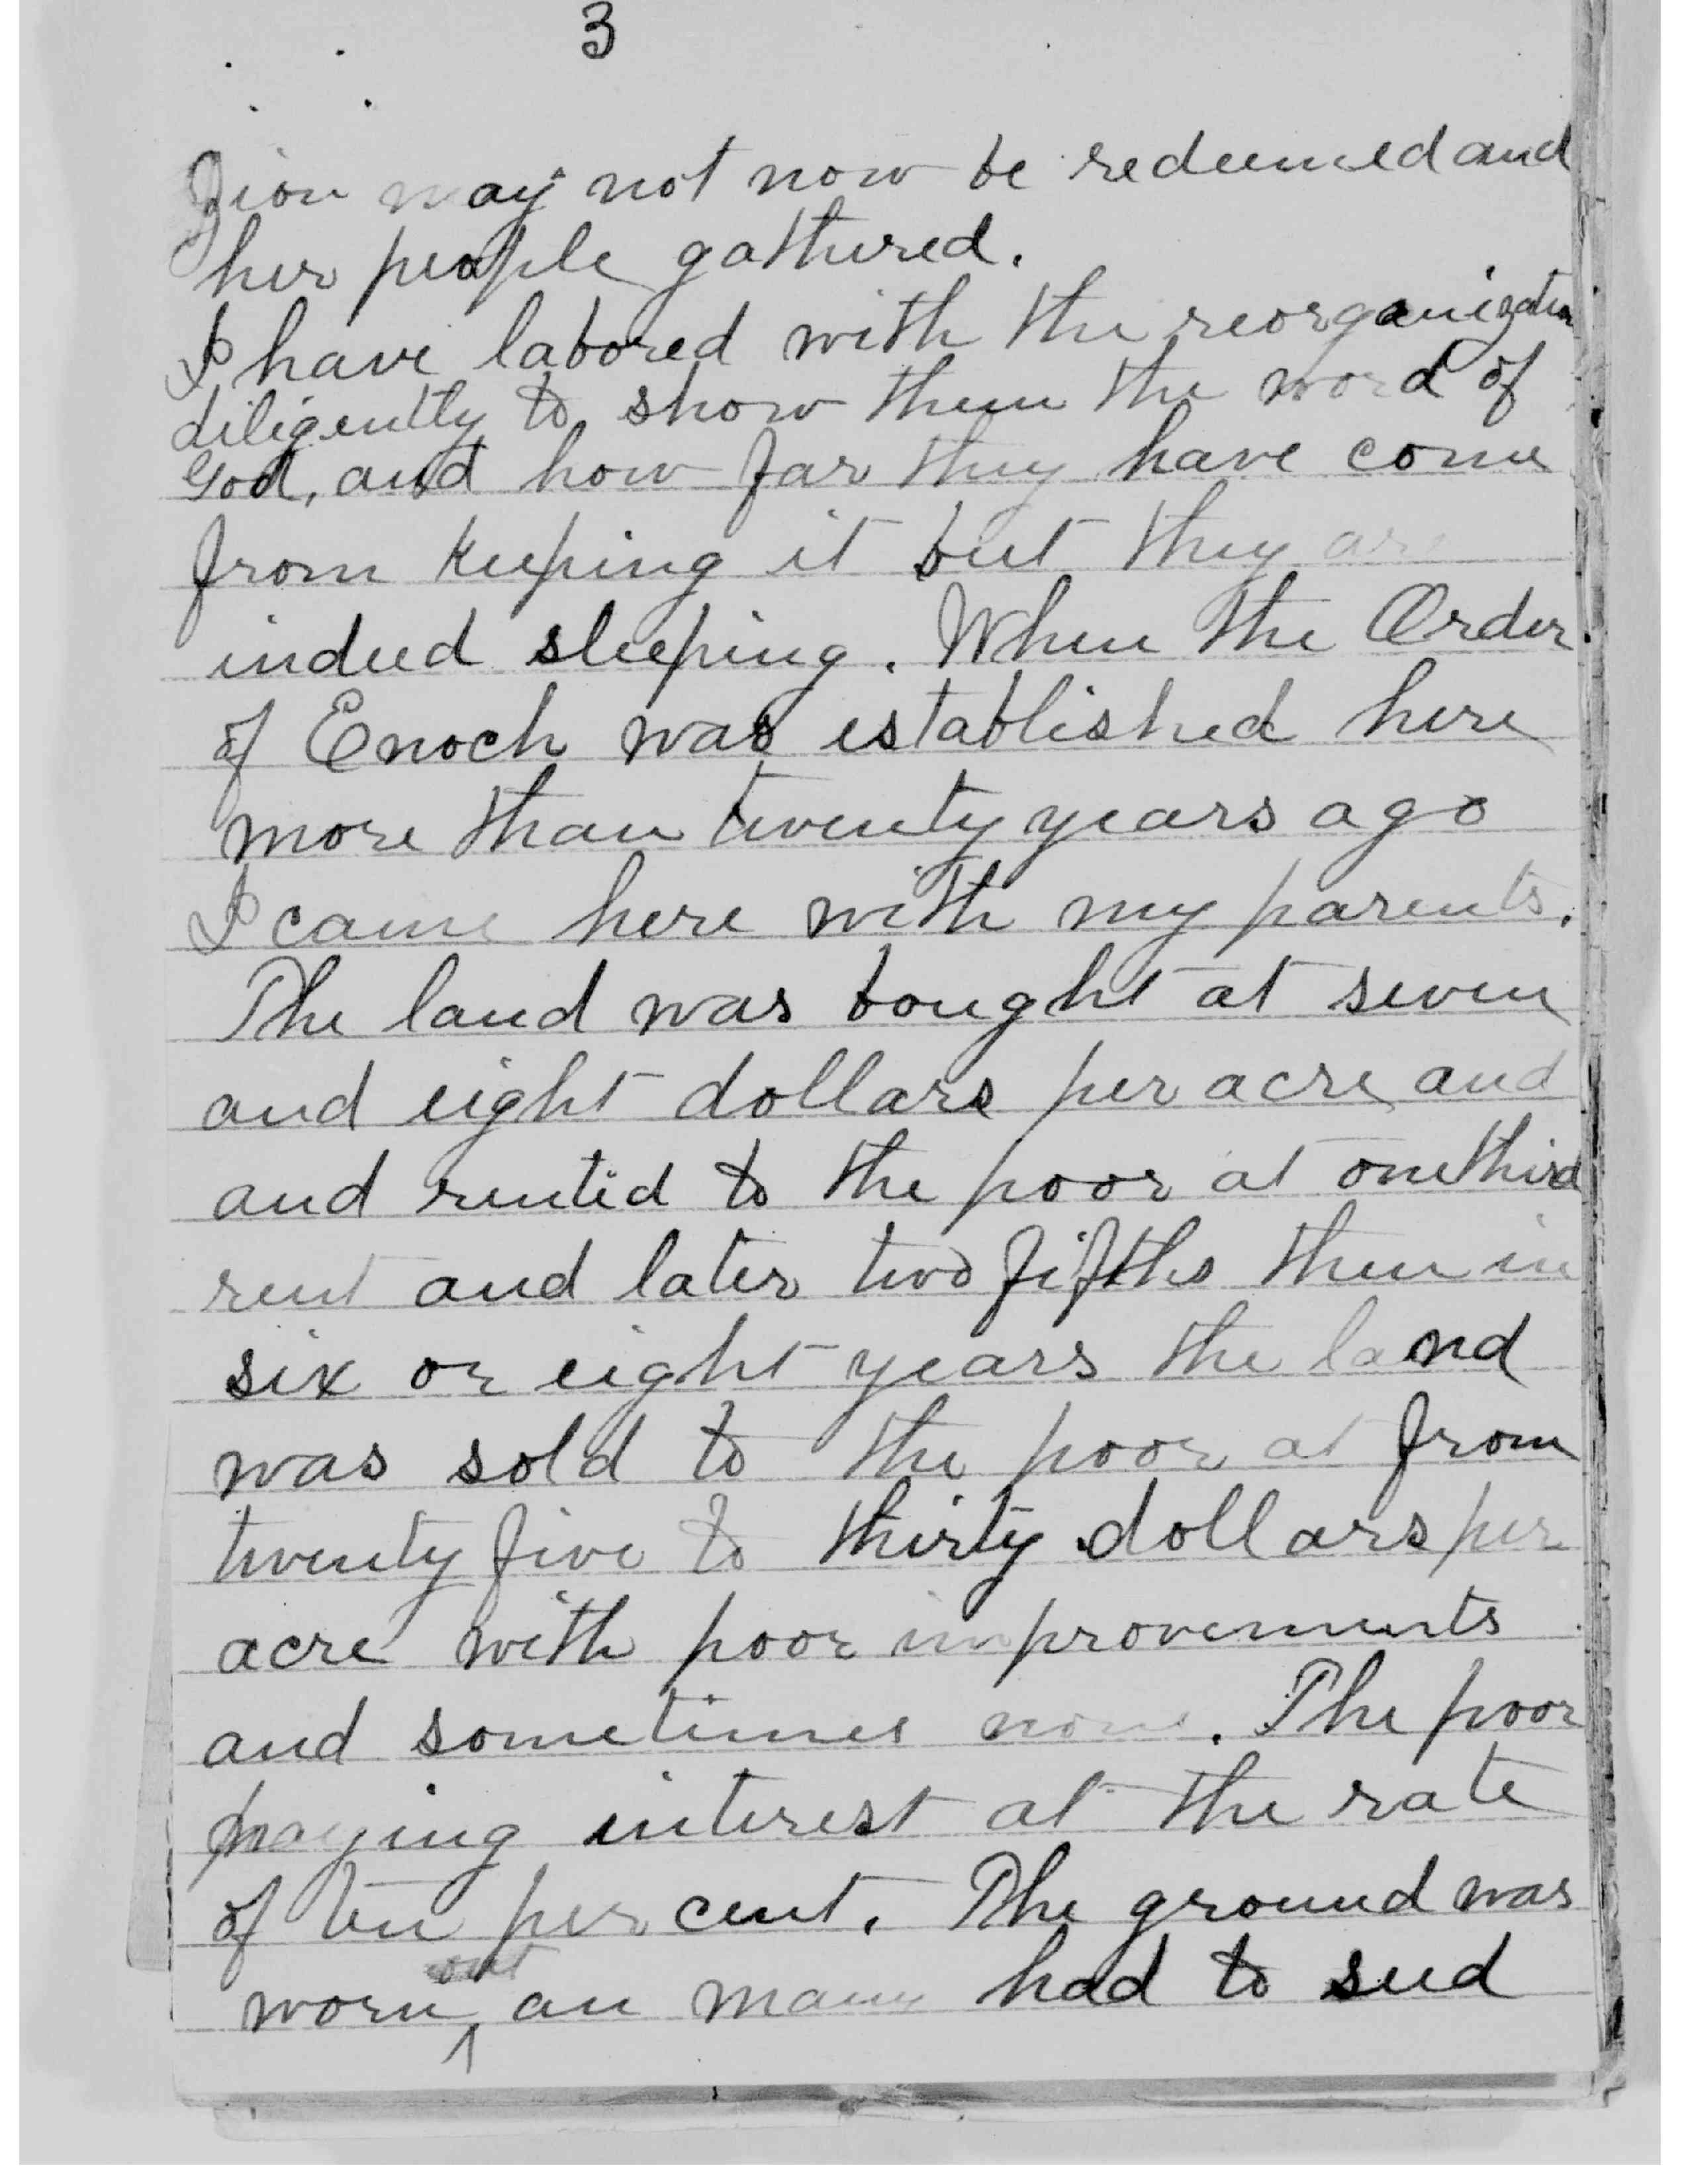 3
Zion may not now be redeemed and
her people gathered.
I have labored with the reorganization
diligently to show them the word of
God, and how far they have come
from keeping it but they are
indeed sleeping. When the Order
of Enoch was established here
more than twenty years ago
I came here with my parents.
The land was bought at seven
and eight dollars per acre and
and rented to the poor at one third
rent and later two fifths then in
six or eight years the land
was sold to the poor at from
twenty five to thirty dollars per
acre with poor improvements
and sometimes none. The poor
paying interest at the rate
of ten per cent. The ground was
worn out an many had to seed